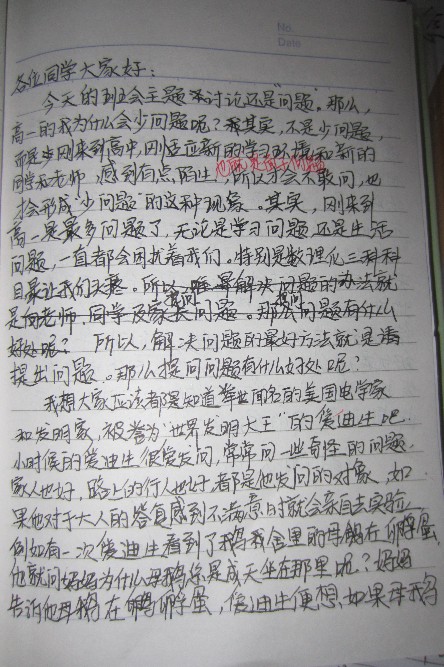 No.
Date
各位同学大家好：
今天的班会主题讨论还是“问题”。那么，
高一的我为什么会少问题呢？其实，不是少问题，
而是刚来到高中，刚适应新的学习环境和新的
同学和老师，感到有点陌生，所以才会不敢问，也
才会形成“少问题”的这种现象。其实，刚来到
高一是最多问题了，无论是学习问题还是生活
问题，一直都会困扰着我们。特别是数理化三科科
目最让我们头疼。所以解决问题的办法就
是向老师、同学及家长问问题。那么问问题有什么
好处呢？所以，解决问题的最好方法就是
提出问题。那么提问问题有什么好处呢？
我想大家应该都是知道举世闻名的美国电学家
和发明家，被誉为“世界发明大王”的爱迪生吧。
小时候的爱迪生很爱发问，常常问一些奇怪的问题。
家人也好，路上的行人也好，都是他发问的对象，如
果他对于大人的答复感到不满意时就会亲自去实验，
例如有一次爱迪生看到了鹅舍里的母鹅在孵蛋，
他就问妈妈为什么母鹅总是成天坐在那里呢？妈妈
告诉他母鹅在孵蛋，爱迪生便想，如果母鹅